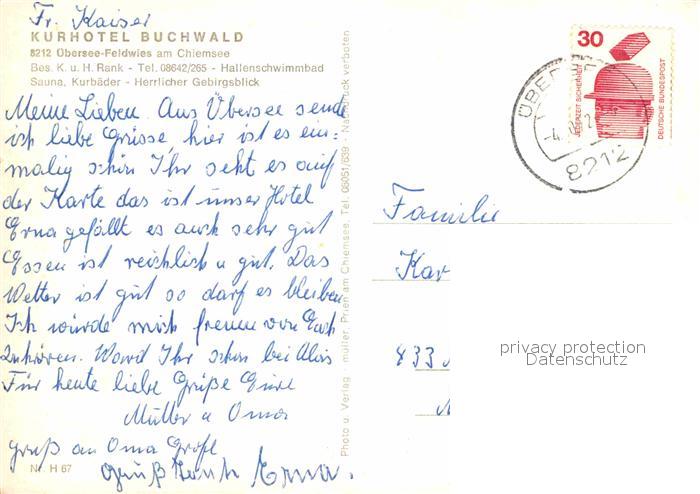 Fr. Kaiser
KURHOTEL BUCHWALD
8212 Übersee-Feldwies am Chiemsee
Bes. K. u. H. Rank - Tel. 08642/265 - Hallenschwimmbad
Sauna, Kurbäder - Herrlicher Gebirgsblick
Meine Lieben Aus Übersee sende
ich liebe Grüsse, hier ist es ein-
malig schön Ihr seht es auf
der Karte das ist unser Hotel
Erna gefällt es auch sehr gut
Essen ist reichlich u gut. Das
Wetter ist gut so darf es bleiben
Ich würde mich freuen von Euch
zuhören. Ward Ihr schon bei Alois
Für heute liebe Grüße Eure
Mutter u Oma
gruß an Oma
Gruß Erna.
Nr. H 67
Photo u. Verlag - müller, Prien am Chiemsee, Tel. 08051/639 - Nachdruck verboten
30
JEDERZEIT SICHERHEIT
DEUTSCHE BUNDESPOST
8212
Familie
Kar
833
privacy protection
Datenschutz